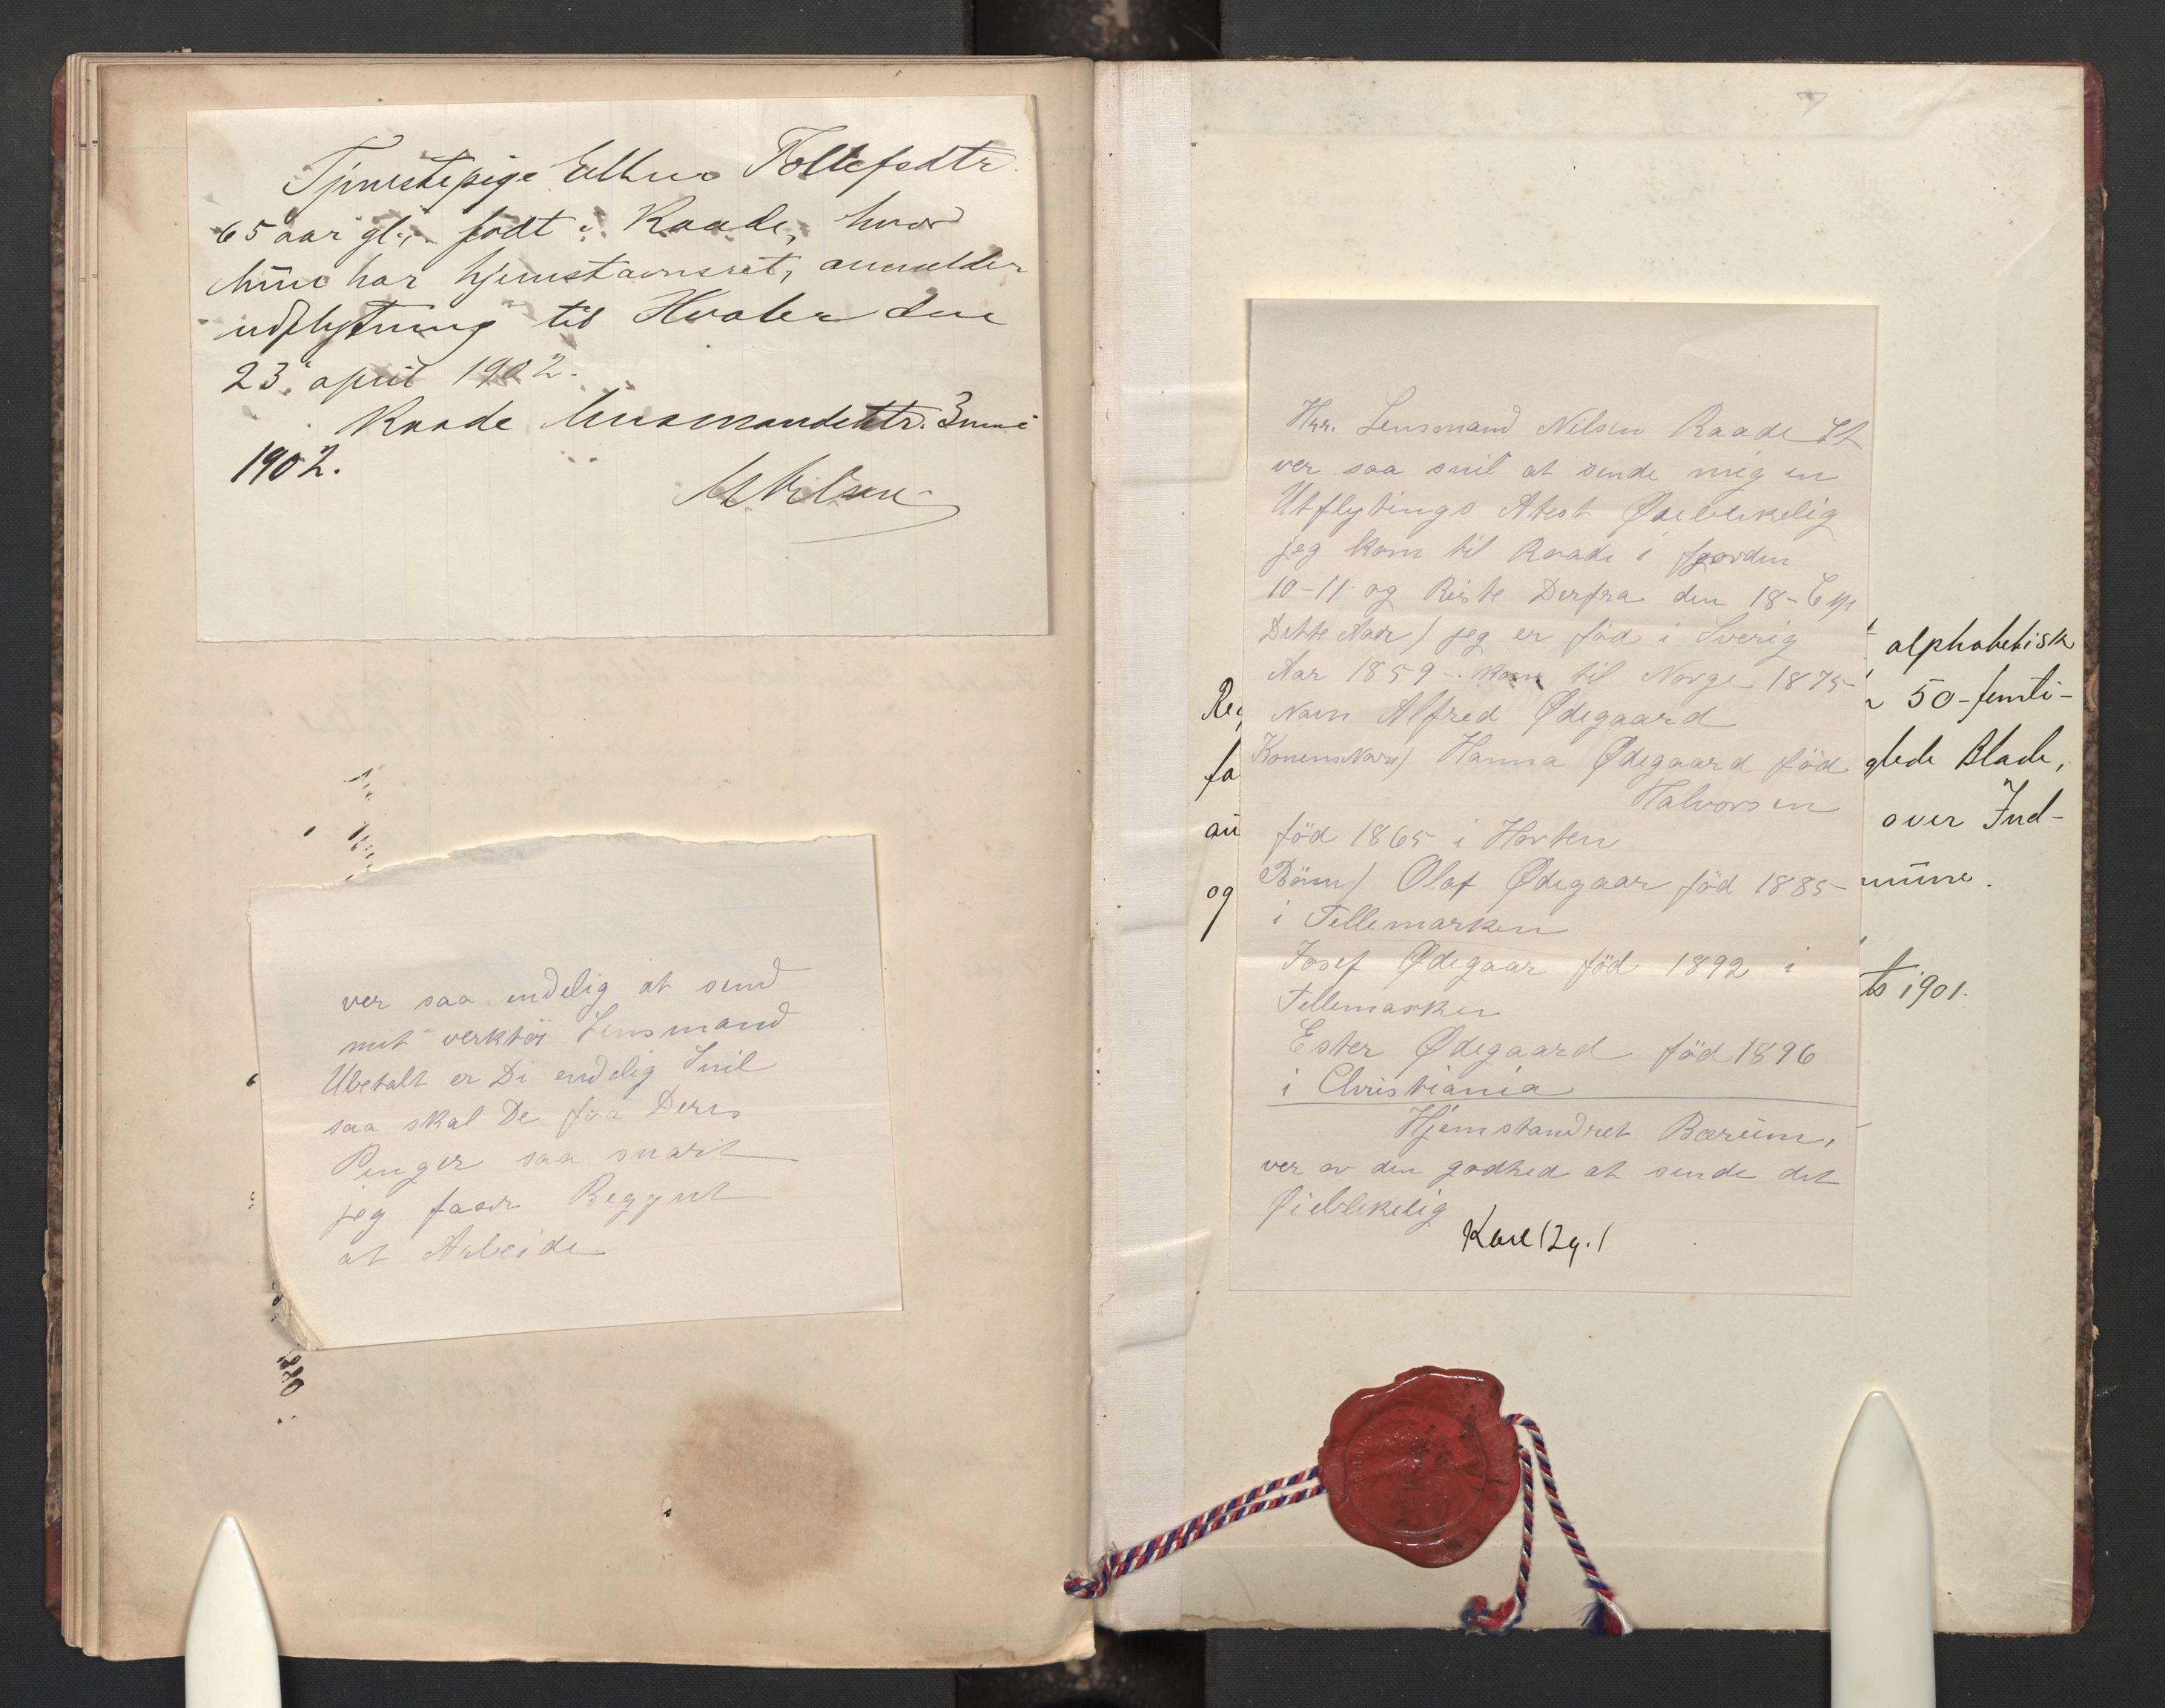 Tjenestepige Tollefsdtr.
65 aar gl., født i Raade, hvor
hun har hjemstavnsret, anmelder
udflytning til Hvaler den
23. april 1902.
Raade 3 juni
1902.
Nilsen
ver saa endelig at send
mit verktöi Lensmand
Ubetalt er Di endelig Snil
saa skal De faa Deres
Penger saa snart
jeg faar Beggynt
at Arbeide
Hrr. Lensmand Nilsen Raade St
ver saa snil at sende mig en
Utflytings Atest Øieblekelig
jeg kom til Raade i fjorden
10-11 og Reiste Derfra den 18-6
Dette Aar / jeg er föd i Sverig
Aar 1859 - kom til Norge 1875
Navn Alfred Ødegaard
Konens Navn / Hanna Ødegaard föd
Halvorsen
föd 1865 i Horten
Börn / Olaf Ødegaar föd 1885
i Tellemarken
Josef Ødegaar föd 1892 i
Tellemarken
Ester Ødegaard föd 1896
i Christiania
Hjemstandret Bærum,
ver av den godhed at sende det
Øieblekelig
alphabetisk
50-femti-
fo
glede Blade,
au
over Ind-
og
mune.
ts 1901.